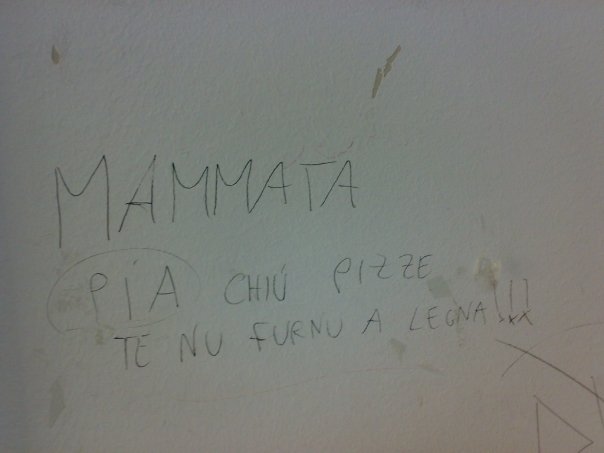 MAMMATA
PÍA CHIÚ PIZZE
TE NU FURNU A LEGNA!!!